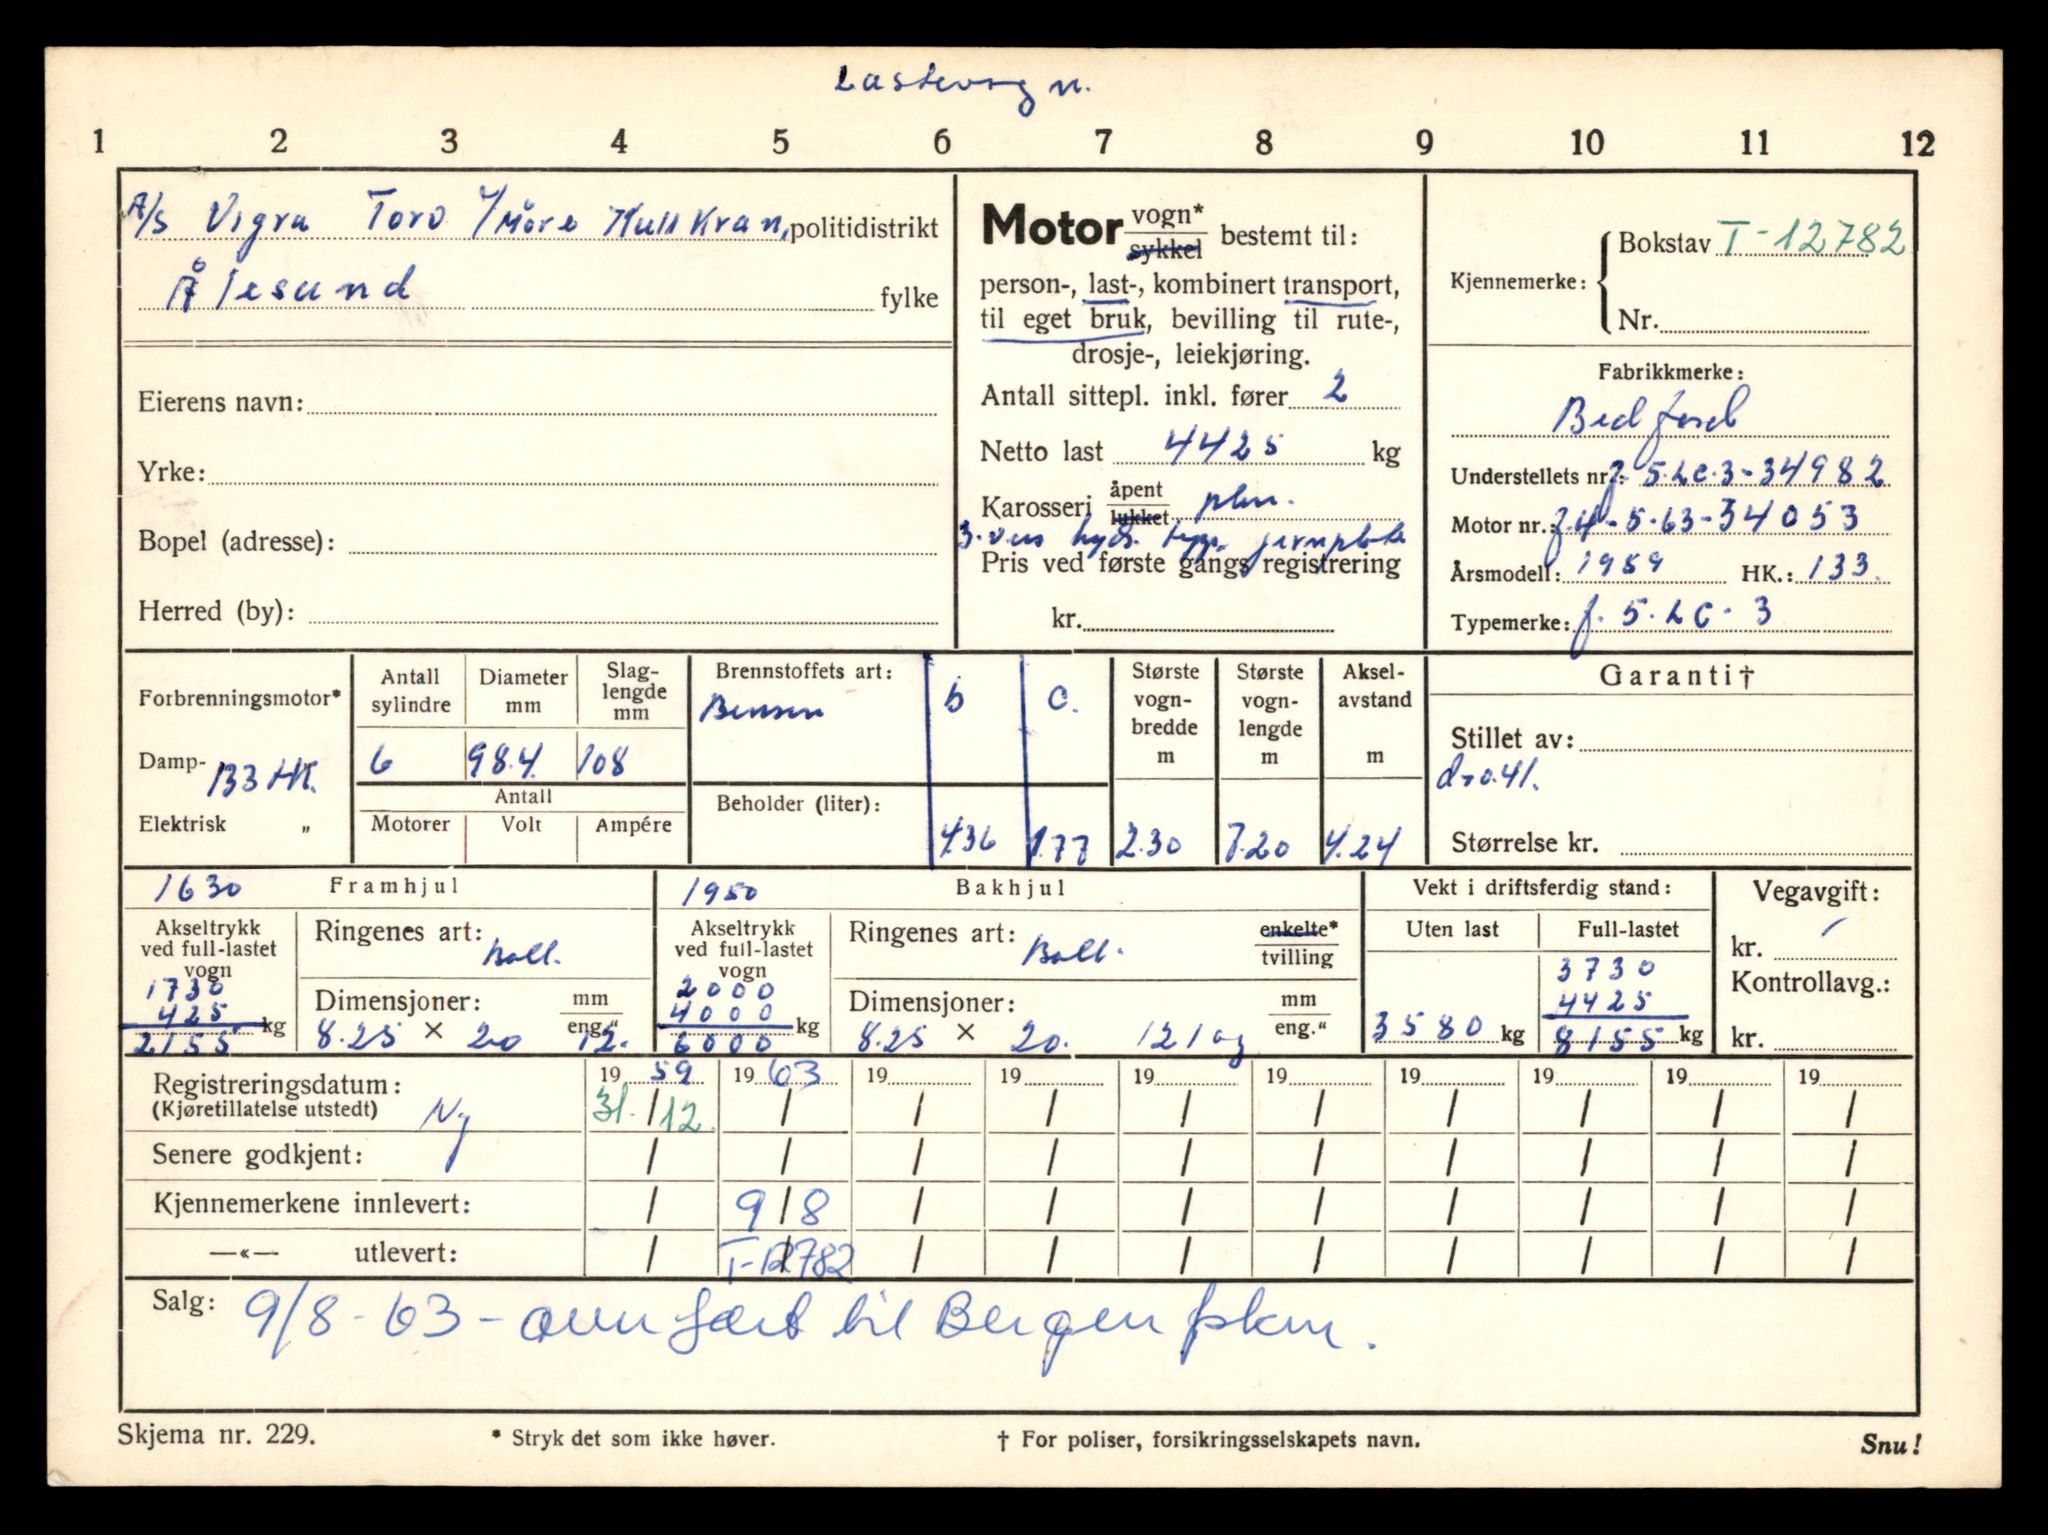 Lastevogn.
1 2 3 4 5 6 7 8 9 10 11 12
A/S Vigra Toro Møre Kull Kran, politidistrikt
Ålesund fylke
Eierens navn:
Yrke:
Bopel (adresse):
Herred (by):
Motor vogn* sykkel bestemt til:
person-, last-, kombinert transport,
til eget bruk, bevilling til rute-,
drosje-, leiekjøring.
Antall sittepl. inkl. fører 2
Netto last 4425 kg
Karosseri åpent lukket plan.
3. veis hydr. tipp. jernplate
Pris ved første gangs registrering
kr.
Kjennemerke: Bokstav T-12782
Nr.
Fabrikkmerke:
Bedford
Understellets nr.: J. 5.LC.3-34982
Motor nr.: J.4-5-63-34053
Årsmodell: 1959 HK.: 133.
Typemerke: J. 5.LC. 3
Forbrenningsmotor*
Damp- 133 HK.
Elektrisk „
Antall sylindre 6
Diameter mm 98.4
Slaglengde mm 108
Antall
Motorer Volt Ampére
Brennstoffets art: b c.
Bensin
Beholder (liter): 4.36 1.77
Største vognbredde m 2.30
Største vognlengde m 7.20
Akselavstand m 4.24
Garanti†
Stillet av:
Størrelse kr.
1630 Framhjul
Akseltrykk ved full-lastet vogn
1730
425
2155 kg
Ringenes art: Ball.
Dimensjoner: mm eng."
8.25 × 20 12.
1950 Bakhjul
Akseltrykk ved full-lastet vogn
2000
4000
6000 kg
Ringenes art: Ball. enkelte* tvilling
Dimensjoner: mm eng."
8.25 × 20. 12 lag
Vekt i driftsferdig stand:
Uten last Full-lastet
3730
4425
3580 kg 8155 kg
Vegavgift:
kr. /
Kontrollavg.:
kr.
Registreringsdatum: 19 59 19 63 19 19 19 19 19 19 19 19
(Kjøretillatelse utstedt) Ny 31./12. / / / / / / / / /
Senere godkjent: / / / / / / / / / /
Kjennemerkene innlevert: / 9/8 / / / / / / / /
—«— utlevert: / T-12782 / / / / / / / /
Salg: 9/8-63 - overført til Bergen pkm.
Skjema nr. 229. * Stryk det som ikke høver. † For poliser, forsikringsselskapets navn. Snu!